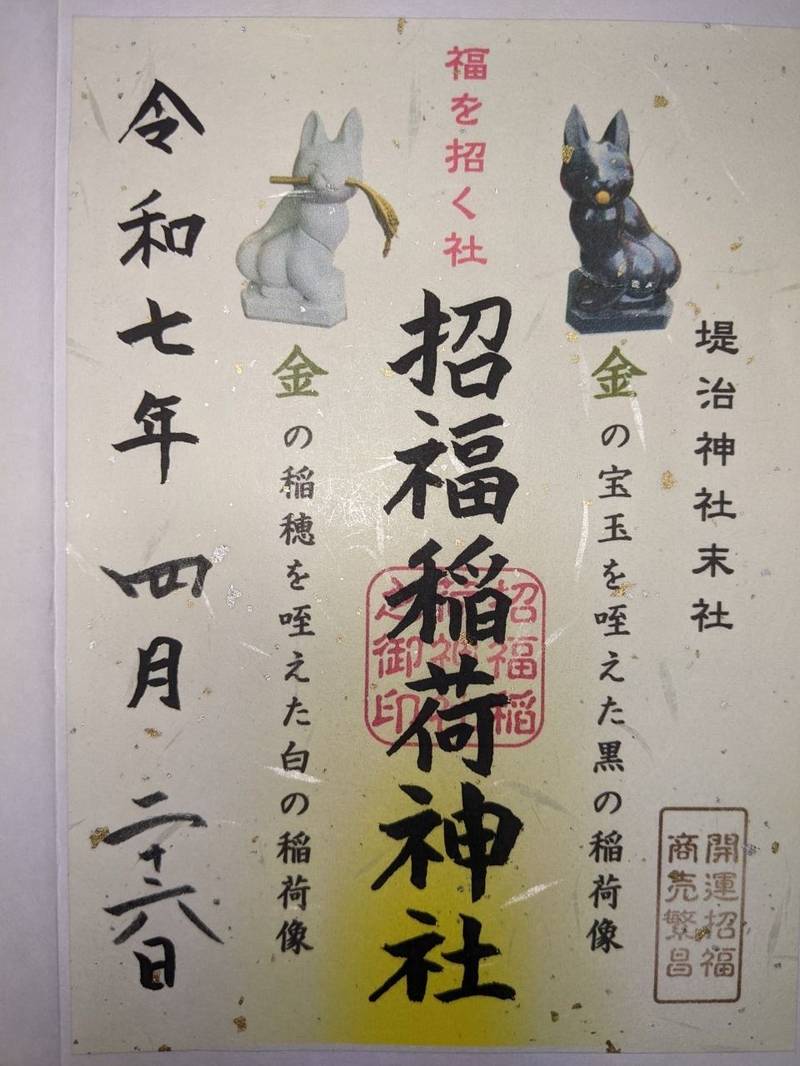 堤治神社末社
開運招福
商売繁昌
金の宝玉を咥えた黒の稲荷像
福を招く社
招福稲荷神社
招福稲
之御印
金の稲穂を咥えた白の稲荷像
令和七年 四月 二十六日